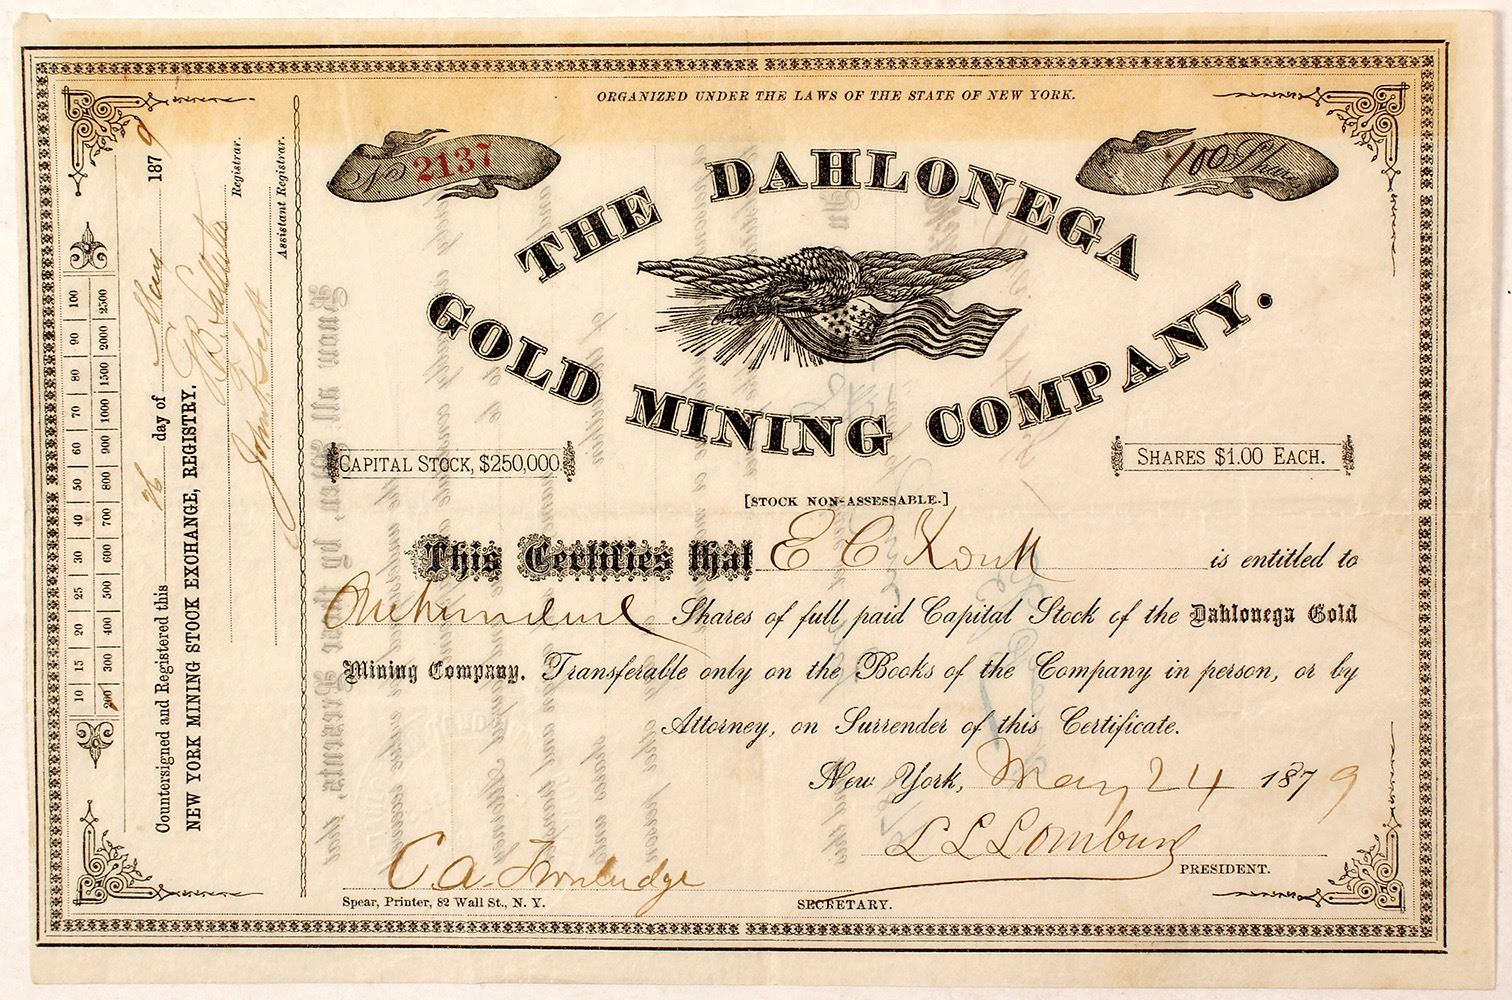 ORGANIZED UNDER THE LAWS OF THE STATE OF NEW YORK.
No 2137
100 Shares
THE DAHLONEGA
GOLD MINING COMPANY.
CAPITAL STOCK, $250,000
SHARES $1.00 EACH.
[STOCK NON-ASSESSABLE.]
This Certifies that E C is entitled to
One hundred Shares of full paid Capital Stock of the Dahlonega Gold
Mining Company. Transferable only on the Books of the Company in person, or by
Attorney, on Surrender of this Certificate.
New York, May 24 1879
L L
PRESIDENT.
C A.
SECRETARY.
Spear, Printer, 82 Wall St., N. Y.
10 15 20 25 30 40 50 60 70 80 90 100
200 300 400 500 600 700 800 900 1000 1500 2000 2500
Countersigned and Registered this 26 day of May 1879
NEW YORK MINING STOCK EXCHANGE, REGISTRY.
Registrar.
John Scott
Assistant Registrar.